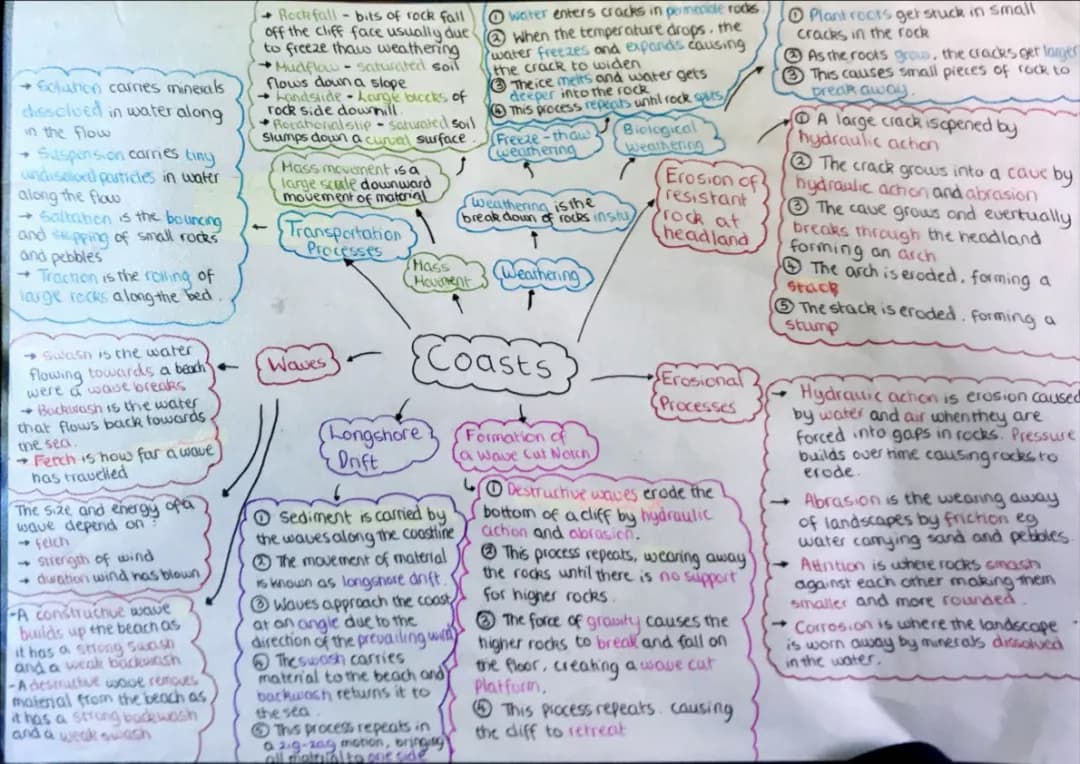 → Rockfall - bits of rock fall
off the cliff face usually due
to freeze thaw weathering
→ Mudflow - saturated soil
flows down a slope
→ Landslide - Large blocks of
rock side downhill.
→ Rotational slip - saturated soil
slumps down a curved surface.
① Water enters cracks in permeable rocks
② When the temperature drops, the
water freezes and expands causing
the crack to widen
③ The ice melts and water gets
deeper into the rock
④ This process repeats until rock splits
① Plant roots get stuck in small
cracks in the rock
② As the roots grow, the cracks get larger
③ This causes small pieces of rock to
break away.
→ Solution carries minerals
dissolved in water along
in the flow
→ Suspension carries tiny
undissolved particles in water
along the flow
→ Saltation is the bouncing
and skipping of small rocks
and pebbles
→ Traction is the rolling of
large rocks along the bed.
Mass movement is a
large scale downward
movement of material
Freeze-thaw
weathering
Biological
weathering
Transportation
Processes
Weathering is the
breakdown of rocks insitu
Mass
Movment
Weathering
Erosion of
resistant
rock at
headland
① A large crack is opened by
hydraulic action
② The crack grows into a cave by
hydraulic action and abrasion
③ The cave grows and eventually
breaks through the headland
forming an arch
④ The arch is eroded, forming a
stack
⑤ The stack is eroded, forming a
stump
Coasts
Waves
→ Swash is the water
flowing towards a beach
were a wave breaks
→ Backwash is the water
that flows back towards
the sea.
→ Fetch is how far a wave
has travelled
The size and energy of a
wave depend on:
→ fetch
→ strength of wind
→ duration wind has blown
- A constructive wave
builds up the beach as
it has a strong swash
and a weak backwash
- A destructive wave removes
material from the beach as
it has a strong backwash
and a weak swash
Longshore
Drift
① Sediment is carried by
the waves along the coastline
② The movement of material
is known as longshore drift.
③ Waves approach the coast
at an angle due to the
direction of the prevailing wind
④ The swash carries
material to the beach and
backwash returns it to
the sea.
⑤ This process repeats in
a zig-zag motion, bringing
all material to one side
Formation of
a Wave Cut Notch
① Destructive waves erode the
bottom of a cliff by hydraulic
action and abrasion.
② This process repeats, wearing away
the rocks until there is no support
for higher rocks.
③ The force of gravity causes the
higher rocks to break and fall on
the floor, creating a wave cut
Platform.
④ This process repeats. causing
the cliff to retreat
Erosional
Processes
→ Hydraulic action is erosion caused
by water and air when they are
forced into gaps in rocks. Pressure
builds over time causing rocks to
erode.
→ Abrasion is the wearing away
of landscapes by friction eg
water carrying sand and pebbles.
→ Attrition is where rocks smash
against each other making them
smaller and more rounded.
→ Corrosion is where the landscape
is worn away by minerals dissolved
in the water.